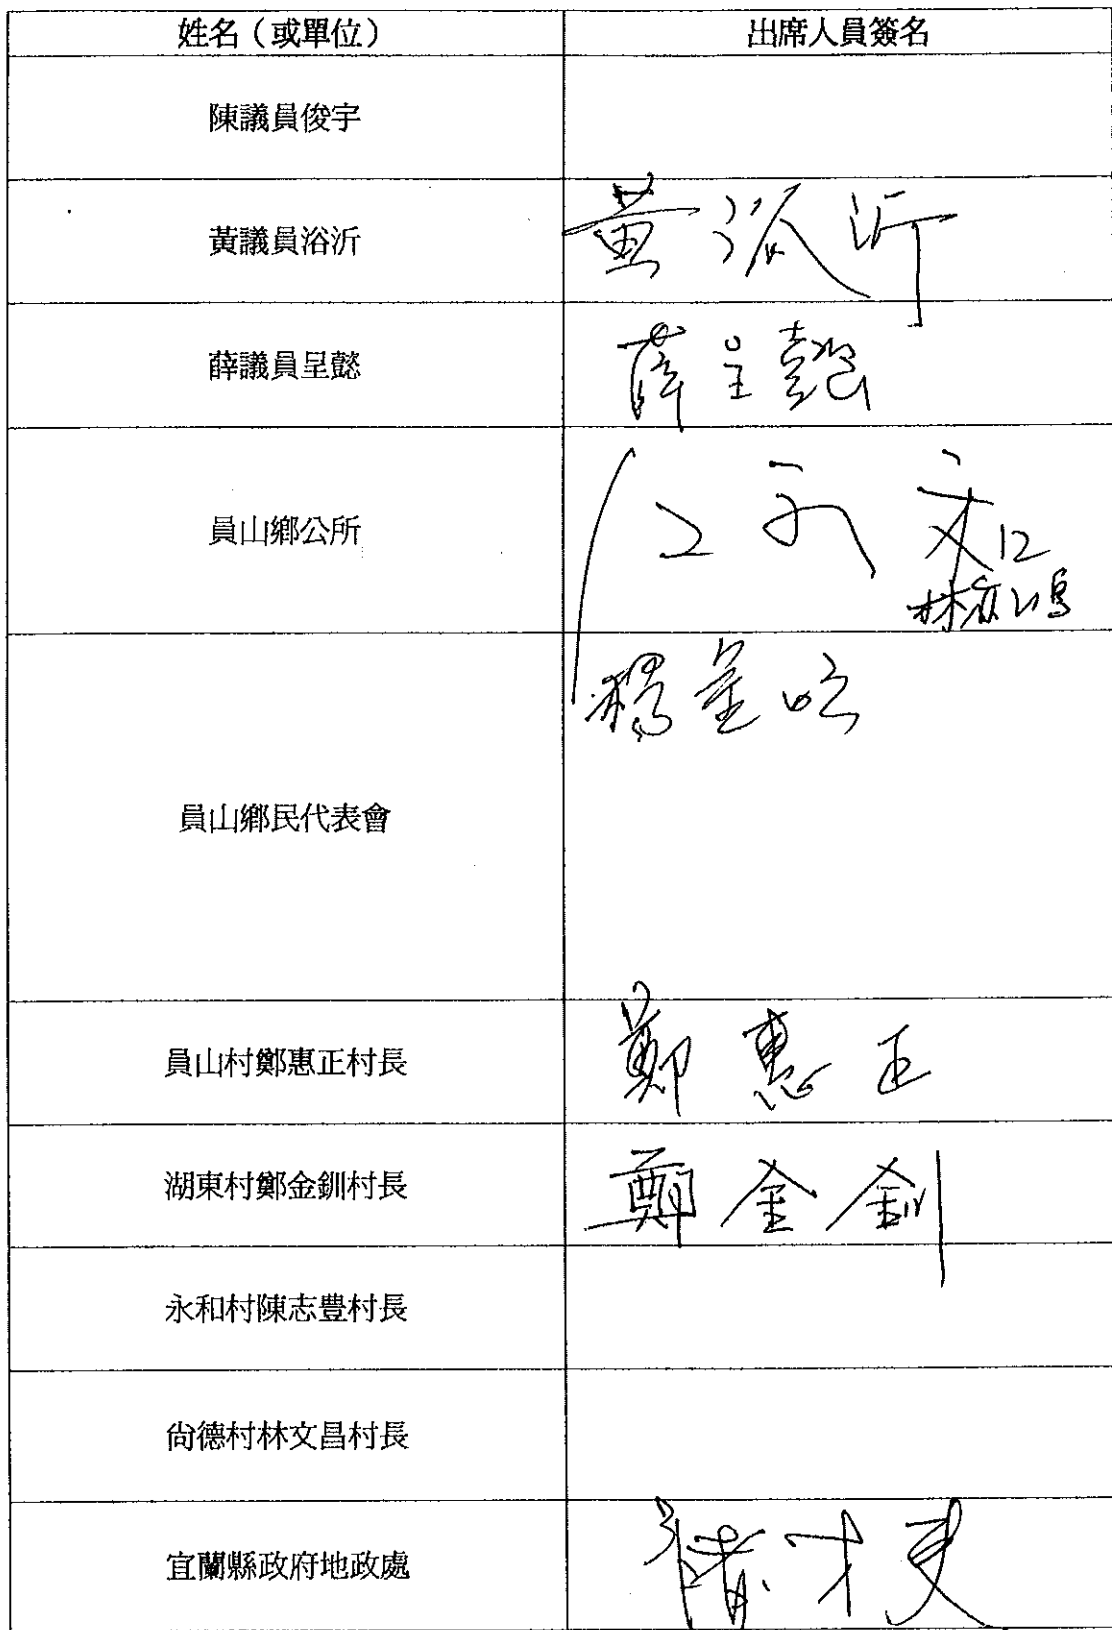 姓名（或單位） 出席人員簽名
陳議員俊宇
黃議員浴沂 黃浴沂
薛議員呈懿 薛呈懿
員山鄉公所
員山鄉民代表會 楊
員山村鄭惠正村長 鄭惠正
湖東村鄭金釧村長 鄭金釧
永和村陳志豊村長
尙德村林文昌村長
宜蘭縣政府地政處